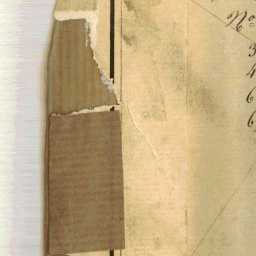 No
3
4
6
6